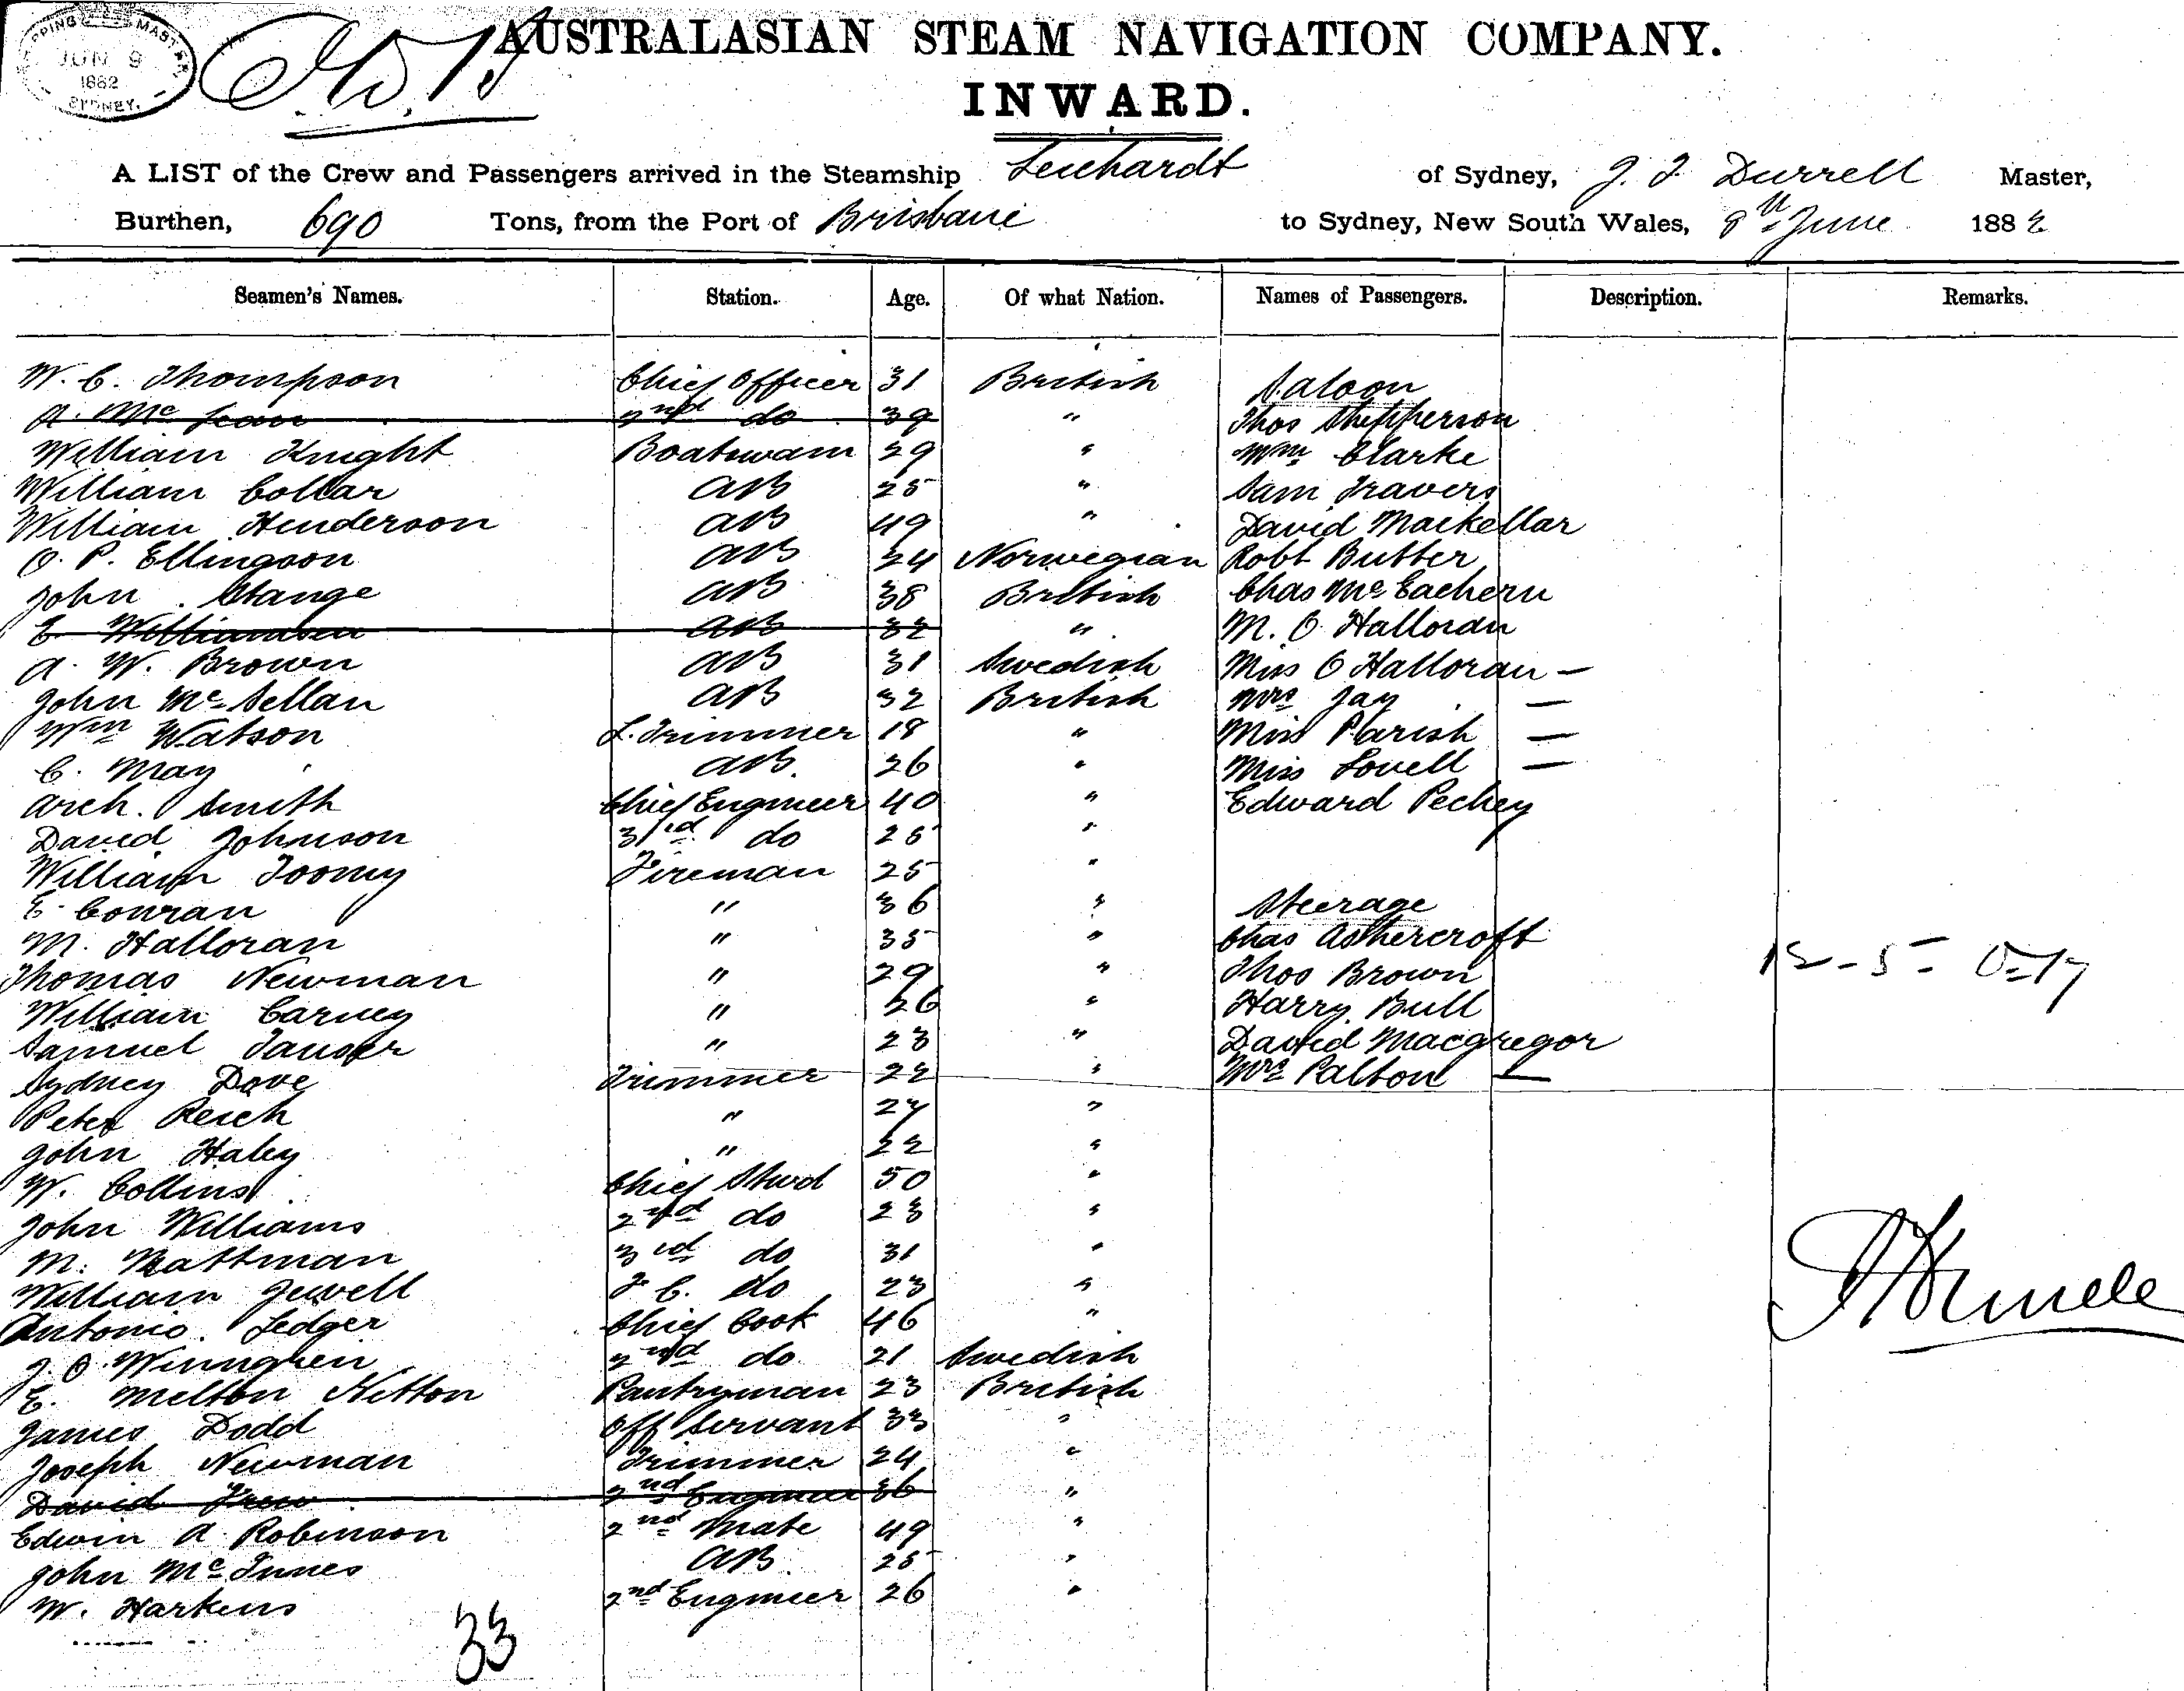 SHIPPING MASTER
JUN 9
1882
SYDNEY.
AUSTRALASIAN STEAM NAVIGATION COMPANY.
INWARD.
A LIST of the Crew and Passengers arrived in the Steamship Leichardt of Sydney, J. J. Durrell Master,
Burthen, 690 Tons, from the Port of Brisbane to Sydney, New South Wales, 8th June 1882
Seamen's Names. Station. Age. Of what Nation. Names of Passengers. Description. Remarks.
W. C. Thompson Chief Officer 31 British Saloon
A. Mc Lean 2nd do 39 " Thos Shepperson
William Knight Boatswain 29 " Wm Clarke
William Collar AB 25 " Sam Travers
William Henderson AB 49 " David Mackellar
O. P. Ellingson AB 24 Norwegian Robt Butter
John Stange AB 38 British Chas McEachern
E Williamsen AB 32 " M. O Halloran
A. W. Brown AB 31 Swedish Miss O Halloran —
John McSellan AB 32 British Mrs Jay —
Wm Watson L. Trimmer 18 " Miss Parish —
C. May AB. 26 " Miss Lovell —
Arch. Smith Chief Engineer 40 " Edward Pechey
David Johnson 3rd do 25 "
William Toomy Fireman 25 "
E. Conran " 36 " Steerage
M. Halloran " 35 " Chas Ashercroft
Thomas Newman " 29 " Thos Brown
William Carney " 26 " Harry Bull
Samuel " 23 " David Macgregor
Sydney Dove Trimmer 22 " Mrs Palton —
Peter Reich " 24 "
John Haley " 22 "
W. Collins Chief Stwd 50 "
John Williams 2nd do 23 "
M. Mattman 3rd do 31 "
William Jewell F. C. do 23 "
Antonio. Ledger Chief Cook 46 "
J. O. Winngren 2nd do. 21 Swedish
E. Melton Netton Pantryman 23 British
James Dodd Off Servant 33 "
Joseph Newman Trimmer 24 "
David Frew 2nd Engineer 36 "
Edwin A Robinson 2nd Mate 49 "
John McInnes AB 25 "
W. Harkens 2nd Engineer 26 "
33